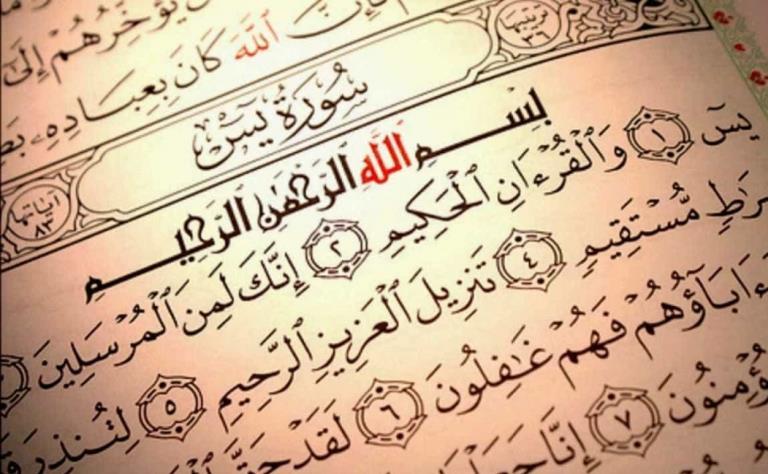 يُؤَخِّرُهُمْ إِلَىٰ
فَإِنَّ ٱللَّهَ كَانَ بِعِبَادِهِۦ
ترتيبها ٣٦
سُورَةُ يسٓ
اياتها ٨٣
بِسْمِ ٱللَّهِ ٱلرَّحْمَٰنِ ٱلرَّحِيمِ
يسٓ ١ وَٱلْقُرْءَانِ ٱلْحَكِيمِ ٢ إِنَّكَ لَمِنَ ٱلْمُرْسَلِينَ
مُّسْتَقِيمٍ ٤ تَنزِيلَ ٱلْعَزِيزِ ٱلرَّحِيمِ ٥ لِتُنذِرَ
ءَابَآؤُهُمْ فَهُمْ غَٰفِلُونَ ٦ لَقَدْ حَقَّ
يُؤْمِنُونَ ٧ إِنَّا جَعَلْنَا